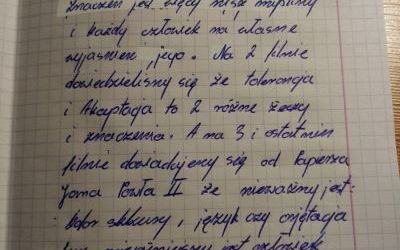 znaczeń jest więcej niższ myślimy
i każdy człowiek ma własne
wyjaśnień jego. Na 2 filmie
dowiedzieliśmy się że tolerancja
i Akaptacja to 2 różne żeczy
i znaczenia. A na 3 i ostatnim
filmie dowiadujemy się od Papierza
Jana Pawła II że nieważny jest:
kolor skkury, język czy
jest człowiek